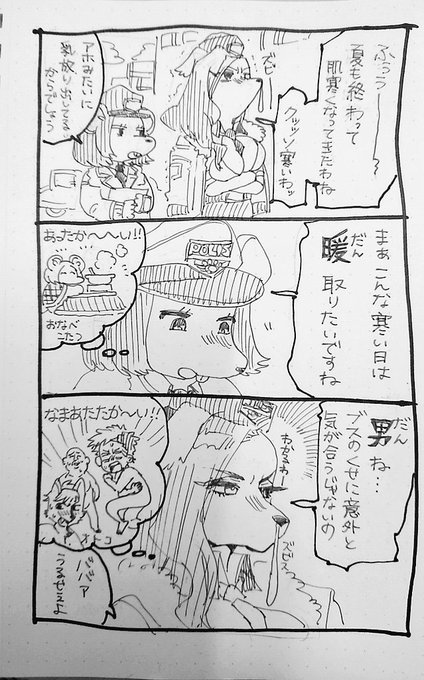 ふぅうー
夏も終わって
肌寒くなってきたわね
ズビ
クッッソ寒いわッ
アホみたいに
乳放り出してる
からでしょう
まぁこんな寒い日は
暖 だん
取りたいですね
POLICE
あったか〜〜い!!
おなべ
こたつ
男 だん
ね…
ブスのくせに意外と
気が合うじゃないの
わかるわー
ズビズ
なまあたたか〜い!!
オトコ
ババァ
うるせえよ